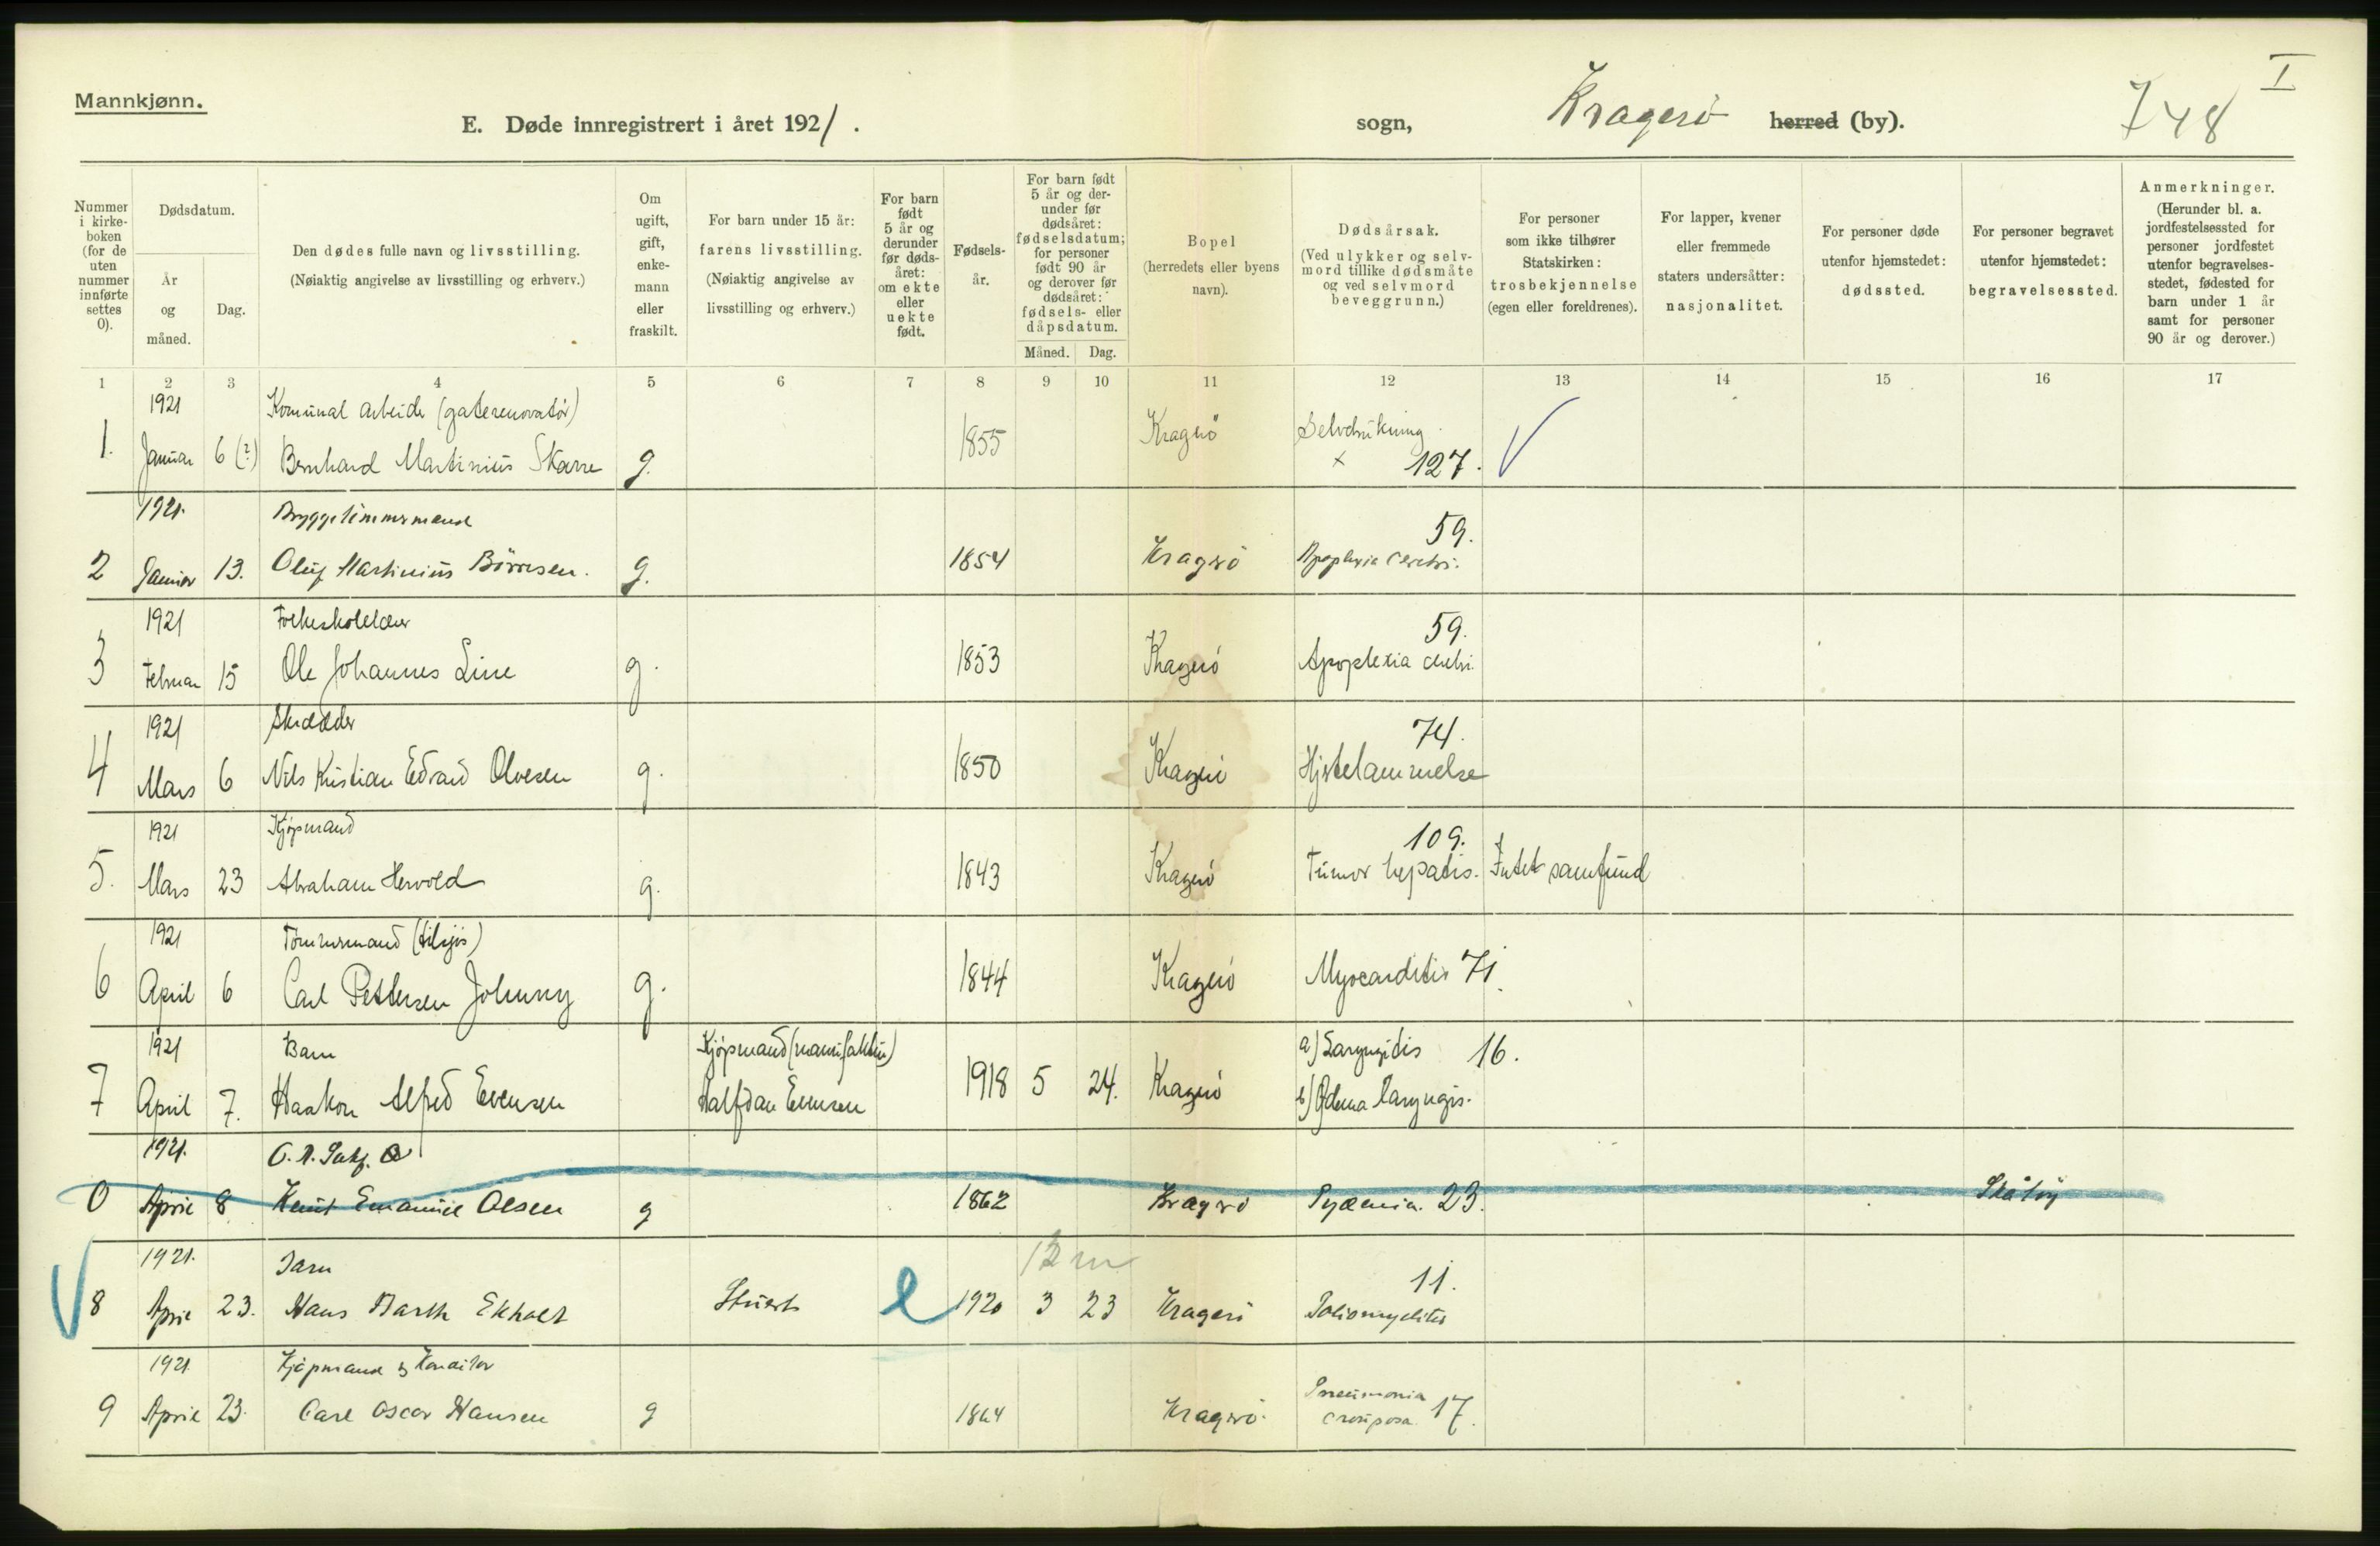 I
Mannkjønn.
E. Døde innregistrert i året 1921. sogn, Kragerö herred (by). 748
Nummer i kirkeboken (for de uten nummer innførte settes 0).
Dødsdatum.
År og måned.
Dag.
Den dødes fulle navn og livsstilling.
(Nøiaktig angivelse av livsstilling og erhverv.)
Om ugift, gift, enkemann eller fraskilt.
For barn under 15 år:
farens livsstilling.
(Nøiaktig angivelse av livsstilling og erhverv.)
For barn født 5 år og derunder før dødsåret: om ekte eller uekte født.
Fødselsår.
For barn født 5 år og derunder før dødsåret: fødselsdatum; for personer født 90 år og derover før dødsåret: fødsels- eller dåpsdatum.
Måned. Dag.
Bopel
(herredets eller byens navn).
Dødsårsak.
(Ved ulykker og selvmord tillike dødsmåte og ved selvmord beveggrunn.)
For personer som ikke tilhører Statskirken: trosbekjennelse (egen eller foreldrenes).
For lapper, kvener eller fremmede staters undersåtter: nasjonalitet.
For personer døde utenfor hjemstedet: dødssted.
For personer begravet utenfor hjemstedet: begravelsessted.
Anmerkninger.
(Herunder bl. a. jordfestelsessted for personer jordfestet utenfor begravelsesstedet, fødested for barn under 1 år samt for personer 90 år og derover.)
1 2 3 4 5 6 7 8 9 10 11 12 13 14 15 16 17
1921 Komunal arbeider (gaterenovatör)
1. Januar 6 (?) Bernhard Martinius Skarre g. 1855 Kragerö Selvdrukning x 127.
1921. Bryggetömmermand
2 Januar 13. Oluf Martinius Börresen. g. 1854 Kragerö Apoplexia cerebri. 59.
1921 Folkeskolelærer
3 Februar 15 Ole Johannes Line g. 1853 Kragerö Apoplexia cerebri. 59.
1921 Skrædder
4 Mars 6 Nils Kristian Edvard Olvesen g. 1850 Kragerö Hjertelammelse 74.
1921 Kjøpmand
5. Mars 23 Abraham Hervold g. 1843 Kragerö Tumor hepatis. 109. Intet samfund
1921 Tömmermand
6 April 6 Carl Pettersen Johnny g. 1844 Kragerö Myocarditis 71.
1921 Barn Kjøpmand (manufaktur)
7 April 7. Haakon Alfred Evensen Halfdan Evensen 1918 5 24. Kragerö a) Laryngitis 16.
b) Ødema laryngis.
1921.
0 April 8 Knut Emanuel Olsen g 1862 Kragerö Pyæmia. 23. Skåtöy
1921. Barn 12 m
8 April 23. Hans Barth Ekholt Stuert e 1920 3 23 Kragerö Poliomyelites 11.
1921 Kjöpmand & Konditor
9 April 23. Carl Oscar Hansen g 1864 Kragerö. Pneumonia crouposa 17.